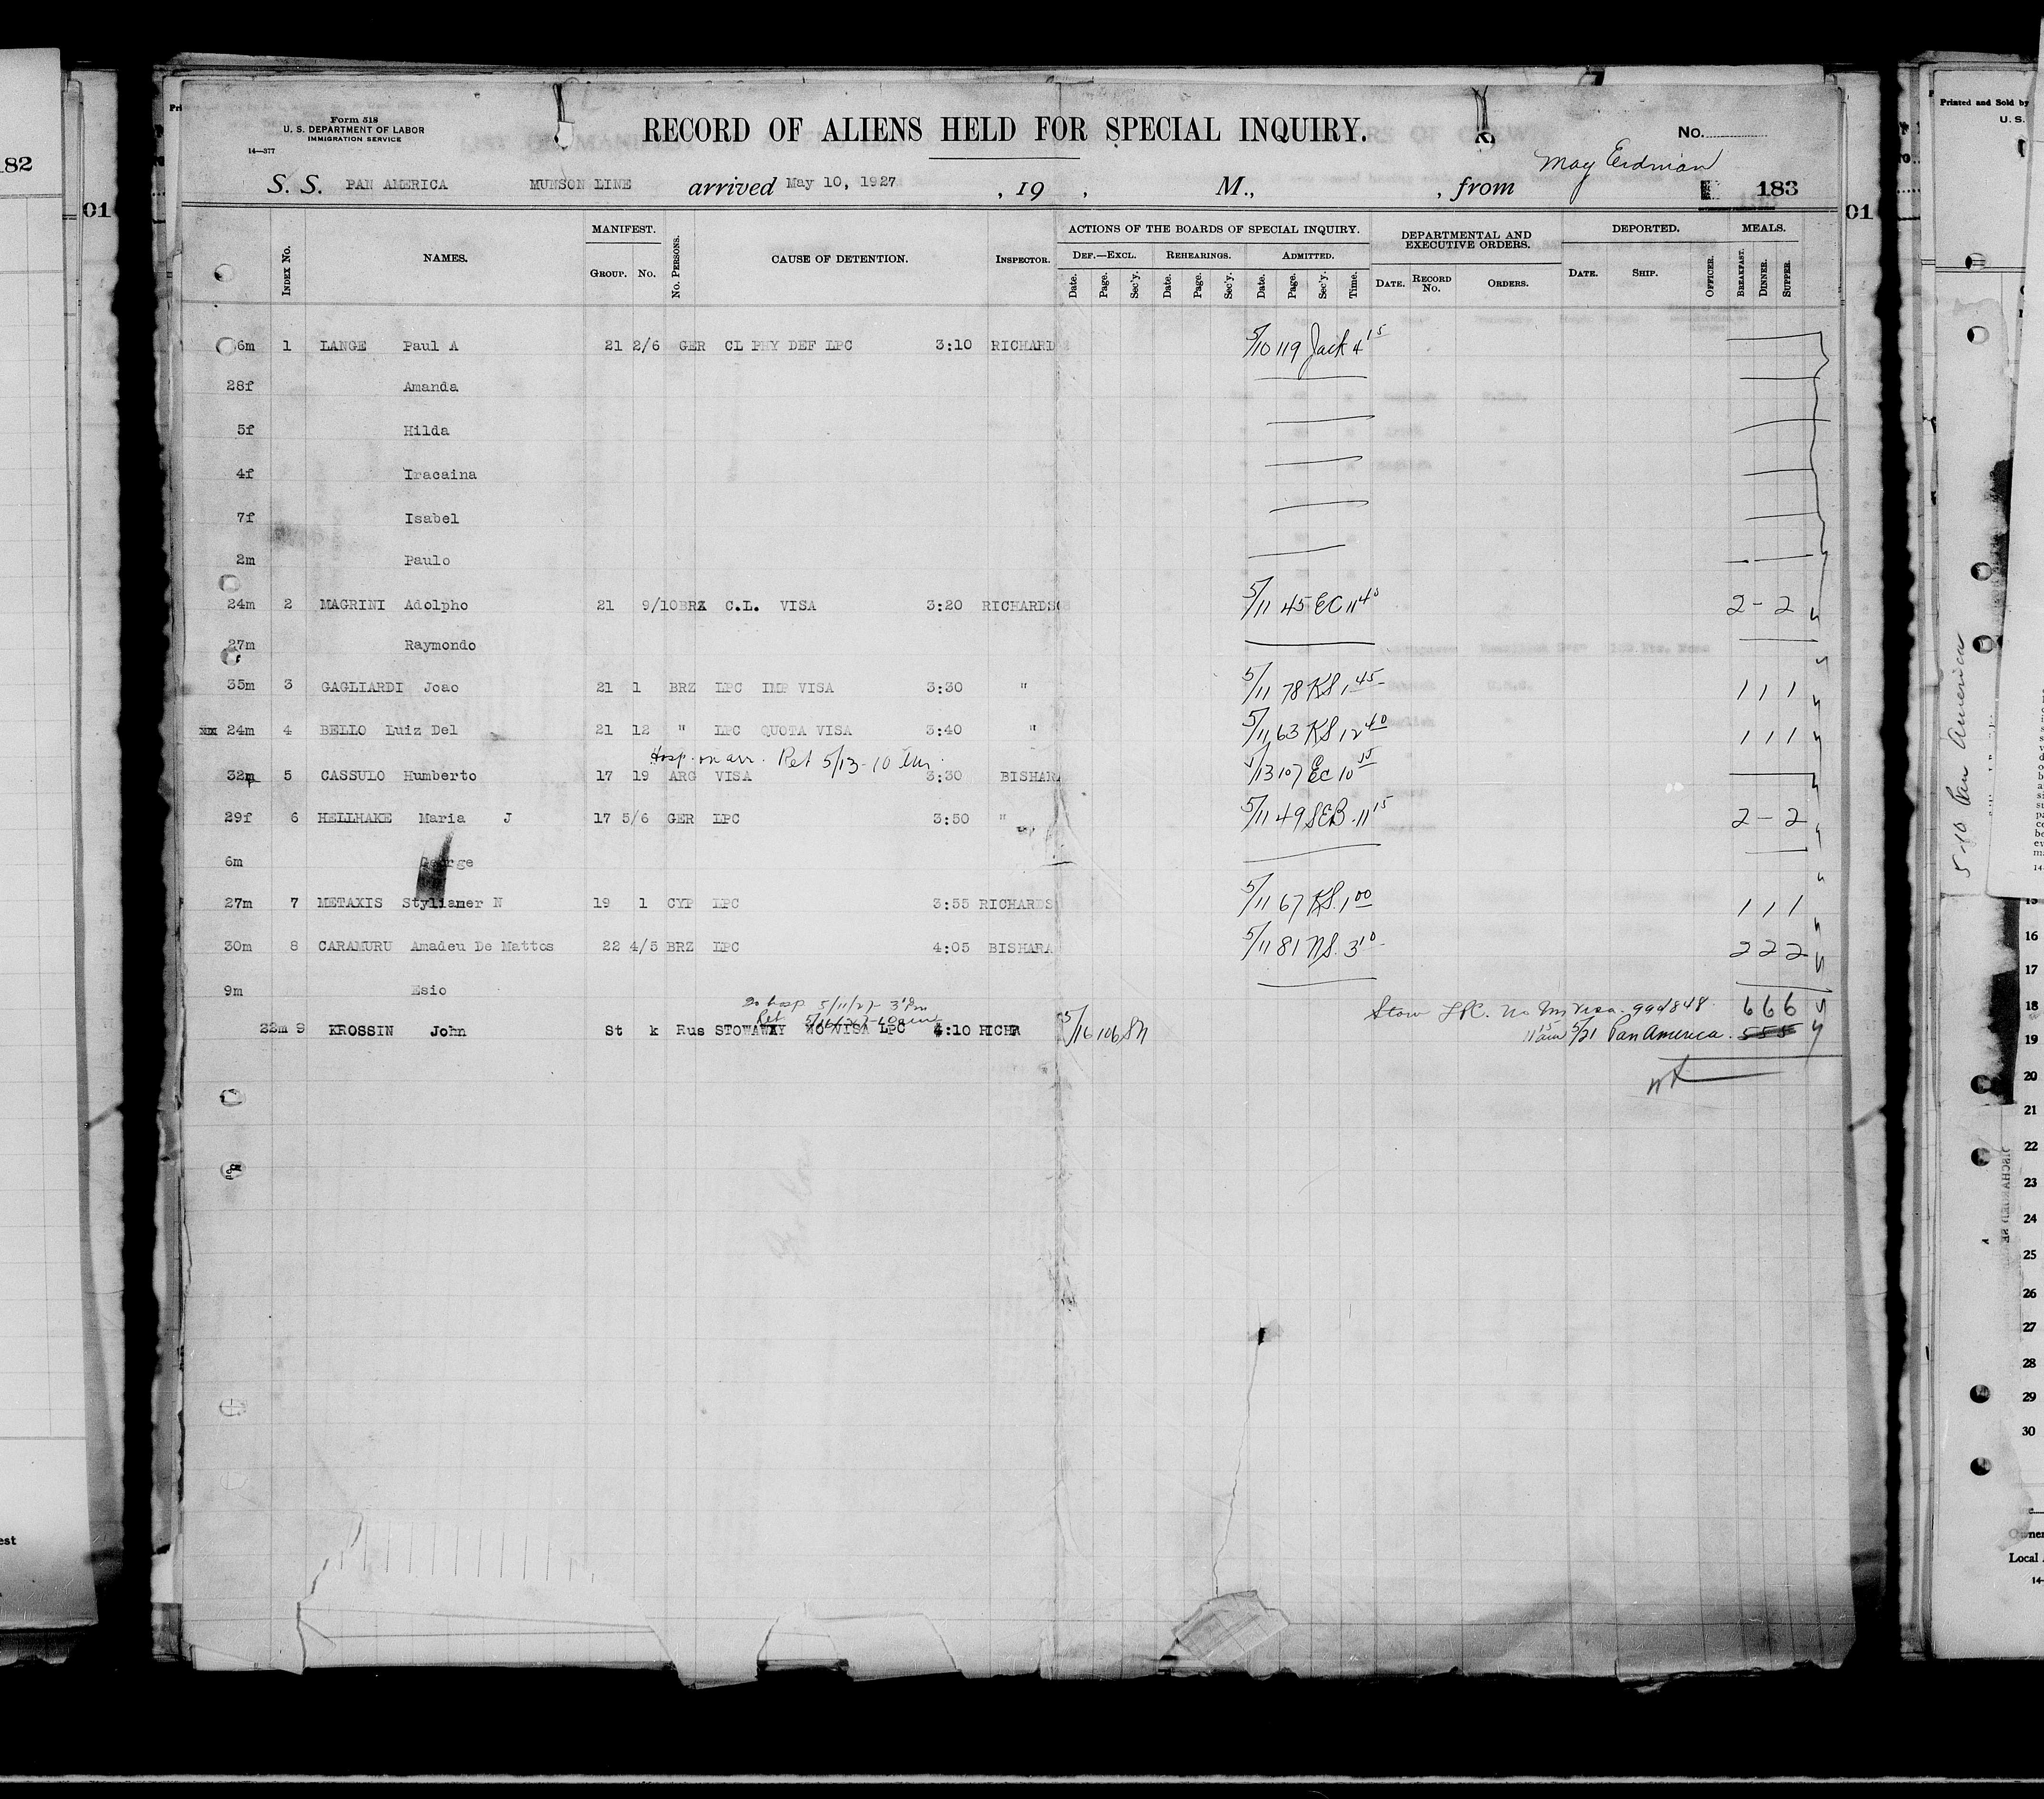 182
01
Form 518
U. S. DEPARTMENT OF LABOR
IMMIGRATION SERVICE
14—377
RECORD OF ALIENS HELD FOR SPECIAL INQUIRY.
No.
May Erdman
S. S. PAN AMERICA MUNSON LINE arrived May 10, 1927 , 19 , M., , from 183
INDEX NO. NAMES. MANIFEST. GROUP. NO. NO. PERSONS. CAUSE OF DETENTION. INSPECTOR. ACTIONS OF THE BOARDS OF SPECIAL INQUIRY. DEPARTMENTAL AND EXECUTIVE ORDERS. DEPORTED. MEALS.
DEF.—EXCL. REHEARINGS. ADMITTED.
Date. Page. Sec'y. Date. Page. Sec'y. Date. Page. Sec'y. Time. DATE. RECORD NO. ORDERS. DATE. SHIP. OFFICER. BREAKFAST. DINNER. SUPPER.
6m 1 LANGE Paul A 21 2/6 GER CL PHY DEF LPC 3:10 RICHARD 5/10 119 Jack 4 15
28f Amanda
5f Hilda
4f Iracaina
7f Isabel
2m Paulo
24m 2 MAGRINI Adolpho 21 9/10 BRZ C.L. VISA 3:20 RICHARDS 5/11 45 EC 11 40 2 - 2
27m Raymondo
35m 3 GAGLIARDI Joao 21 1 BRZ LPC IMP VISA 3:30 " 5/11 78 KS 1 45 1 1 1
24m 4 BELLO Luiz Del 21 12 " LPC QUOTA VISA 3:40 " 5/11 63 KS 12 40 1 1 1
Hosp. on arr. Ret 5/13 - 10
32m 5 CASSULO Humberto 17 19 ARG VISA 3:30 BISHARA 5/13 107 EC 10
29f 6 HELLHAKE Maria J 17 5/6 GER LPC 3:50 " 5/11 49 SEB 11 15 2 - 2
6m George
27m 7 METAXIS Stylianer N 19 1 CYP LPC 3:55 RICHARDS 5/11 67 KS. 1 00 1 1 1
30m 8 CARAMURU Amadeu De Mattos 22 4/5 BRZ LPC 4:05 BISHARA 5/11 81 NS. 3 10 2 2 2
9m Esio
To hosp 5/11/27 3 PM
Ret
Stow LPC. No Im Visa. 99d848 6 6 6
22m 9 KROSSIN John St k Rus STOWAWAY NO VISA LPC 4:10 RICHR 5/16 106 SN 11 15 am 5/21 Pan America. 555
01
Printed and Sold by
U. S.
5-10 Pan America
16
17
18
19
20
21
22
23
24
25
26
27
28
29
30
Local